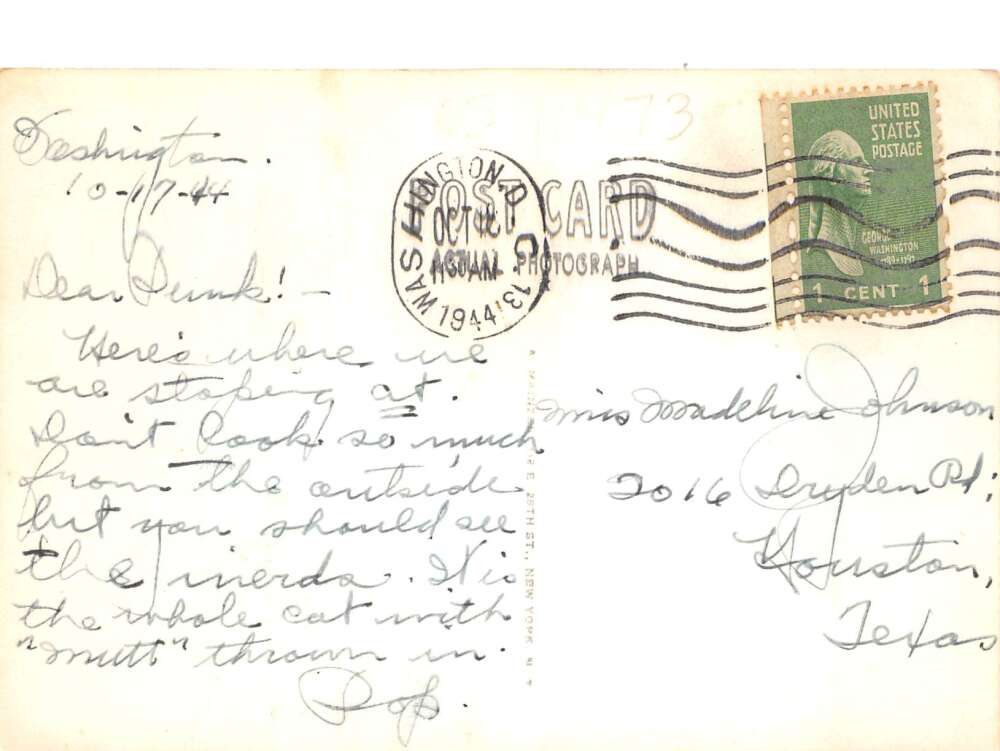 Washington.
10-17-44
Dear Punk! -
Here's where we
are stoping at.
Don't look so much
from the outside
but you should see
the inerds. It is
the whole cat with
"Mutt" thrown in.
Pop.
POST CARD
PHOTOGRAPH
WASHINGTON, D.C. 13
OCT
11 30 AM
1944
UNITED
STATES
POSTAGE
GEORGE
WASHINGTON
1789-1797
1 CENT 1
Miss Madeline Johnson
2016 Dryden Rd;
Houston,
Texas
E. 26TH ST., NEW YORK N Y